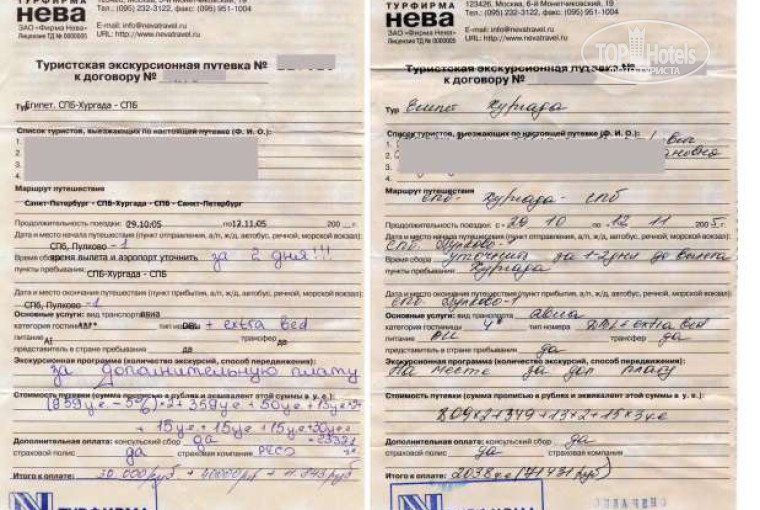 ТУРФИРМА
НЕВА
ЗАО «Фирма Нева»
Лицензия ТД № 0000005
123426, Москва, 6-й Монетчиковский, 19
Тел.: (095) 232-3122, факс: (095) 951-1004
E-mail: info@nevatravel.ru
URL: http://www.nevatravel.ru
Туристская экскурсионная путевка №
к договору №
Тур Египет. СПБ-Хургада - СПБ
Список туристов, выезжающих по настоящей путевке (Ф. И. О.):
1.
2.
3.
4.
Маршрут путешествия
Санкт-Петербург - СПБ-Хургада - СПБ - Санкт-Петербург
Продолжительность поездки: 29.10.05 по 12.11.05 200
Дата и место начала путешествия (пункт отправления, а/п, ж/д, автобус, речной, морской вокзал):
СПб, Пулково -1
Время сбора время вылета и аэропорт уточнить за 2 дня!!!
пункты пребывания СПБ-Хургада - СПБ
Дата и место окончания путешествия (пункт прибытия, а/п, ж/д, автобус, речной, морской вокзал):
СПб, Пулково -1
Основные услуги: вид транспорта авиа
категория гостиницы 4*** тип номера DBL + extra bed
питание AI трансфер да
представитель в стране пребывания да
Экскурсионная программа (количество экскурсий, способ передвижения):
за дополнительную плату
Стоимость путевки (сумма прописью в рублях и эквивалент этой суммы в у. е.):
(859 уе - 5%)*2 + 359 уе + 50 уе + 15 уе
+ 15 уе + 15 уе + 15 уе
Дополнительная оплата: консульский сбор да
страховой полис да страховая компания РЕСО
Итого к оплате: 20.000 руб + 40000 руб +
ТУРФИРМА
ТУРФИРМА
НЕВА
ЗАО «Фирма Нева»
Лицензия ТД № 0000005
123426, Москва, 6-й Монетчиковский, 19
Тел.: (095) 232-3122, факс: (095) 951-1004
E-mail: info@nevatravel.ru
URL: http://www.nevatravel.ru
TopHotels
Туристская экскурсионная путевка №
к договору №
Тур Египет Хургада
Список туристов, выезжающих по настоящей путевке (Ф. И. О.):
1.
2.
3.
4.
Маршрут путешествия
СПб - Хургада - СПб
Продолжительность поездки: с 29 10 по 12 11 2005 г.
Дата и место начала путешествия (пункт отправления, а/п, ж/д, автобус, речной, морской вокзал):
СПб. Пулково-
Время сбора уточнить за 1-2 дня до вылета
пункты пребывания Хургада
Дата и место окончания путешествия (пункт прибытия, а/п, ж/д, автобус, речной, морской вокзал):
СПб Пулково-1
Основные услуги: вид транспорта авиа
категория гостиницы 4* тип номера DBL+extra bed
питание трансфер да
представитель в стране пребывания да
Экскурсионная программа (количество экскурсий, способ передвижения):
На месте за доп плату
Стоимость путевки (сумма прописью в рублях и эквивалент этой суммы в у. е.):
809×2+349+13×2+15×3 уе
Дополнительная оплата: консульский сбор да
страховой полис да страховая компания
Итого к оплате: 2038 уе (71431 руб)
ТУРФИРМА